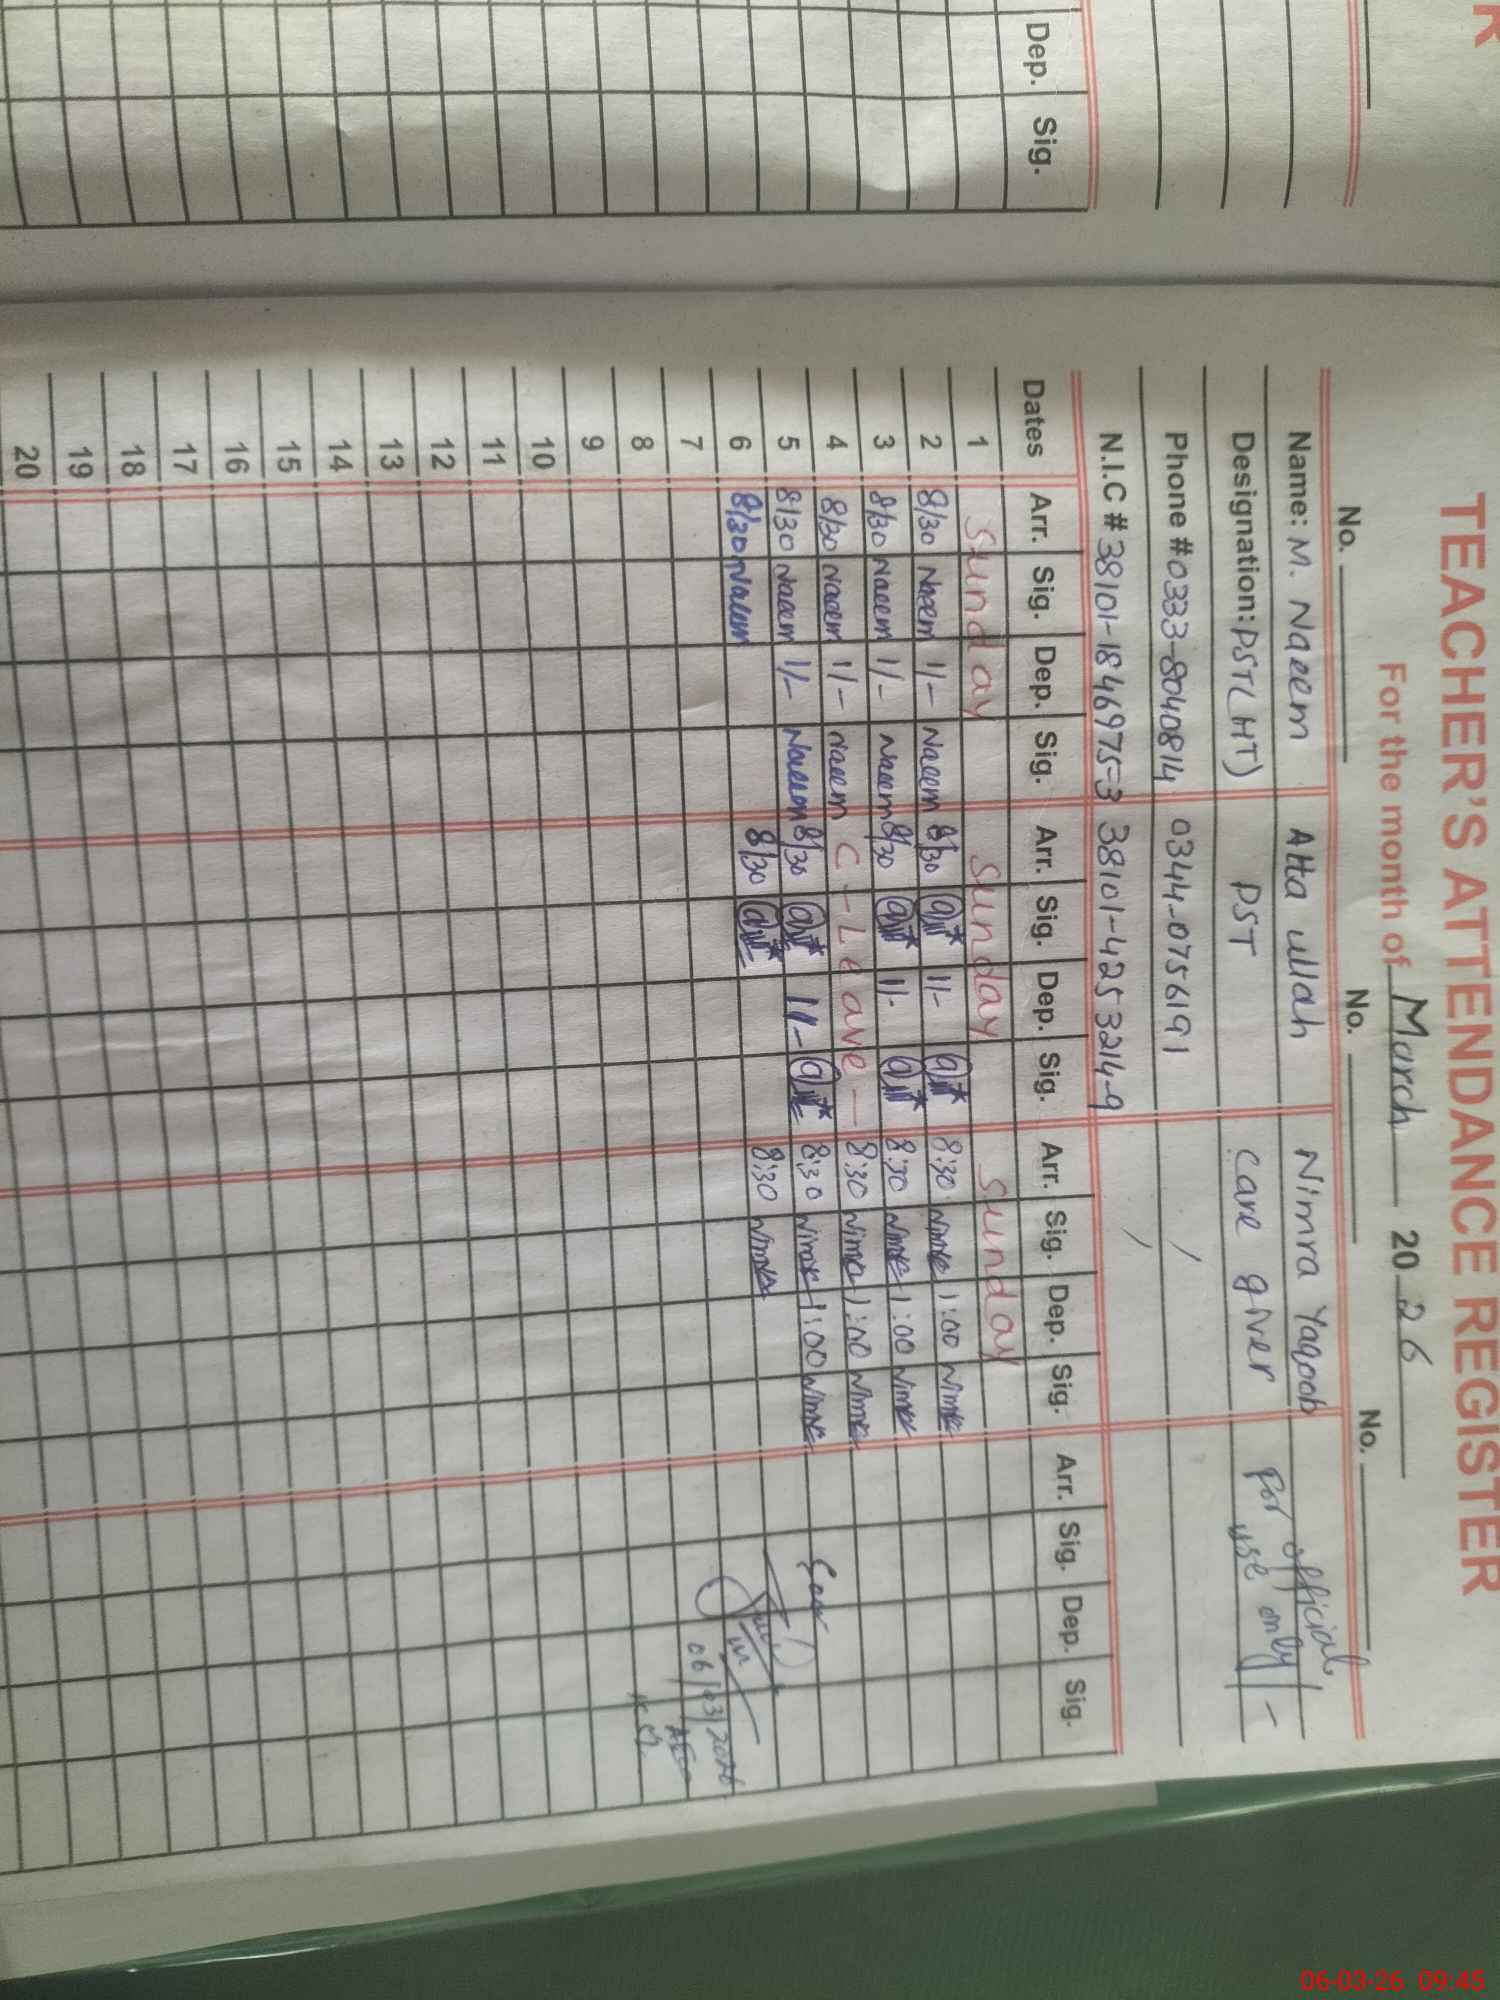 R
Dep. Sig.
TEACHER'S ATTENDANCE REGISTER
For the month of March 2026
No. No. No.
Name: M. Naeem Atta ullah Nimra Yaqoob For official
Designation: PST (HT) PST Care giver use only -
Phone # 0333-8040814 0344-0756191
N.I.C # 38101-1846975=3 38101-4253214-9
Dates Arr. Sig. Dep. Sig. Arr. Sig. Dep. Sig. Arr. Sig. Dep. Sig. Arr. Sig. Dep. Sig.
1 Sunday Sunday Sunday
2 8/30 Naeem 1/- Naeem 8/30 1/- 8:30 Nimra 1:00 Nimra
3 8/30 Naeem 1/- Naeem 8/30 1/- 8:30 Nimra 1:00 Nimra
4 8/30 Naeem 1/- Naeem C-Leave- 8:30 Nimra 1:00 Nimra
5 8/30 Naeem 1/- Naeem 8/30 1/- 8:30 Nimra 1:00 Nimra
6 8/30 Naeem 8/30 8:30 Nimra
06/03/2026
7
8
9
10
11
12
13
14
15
16
17
18
19
20
06-03-26 09:45